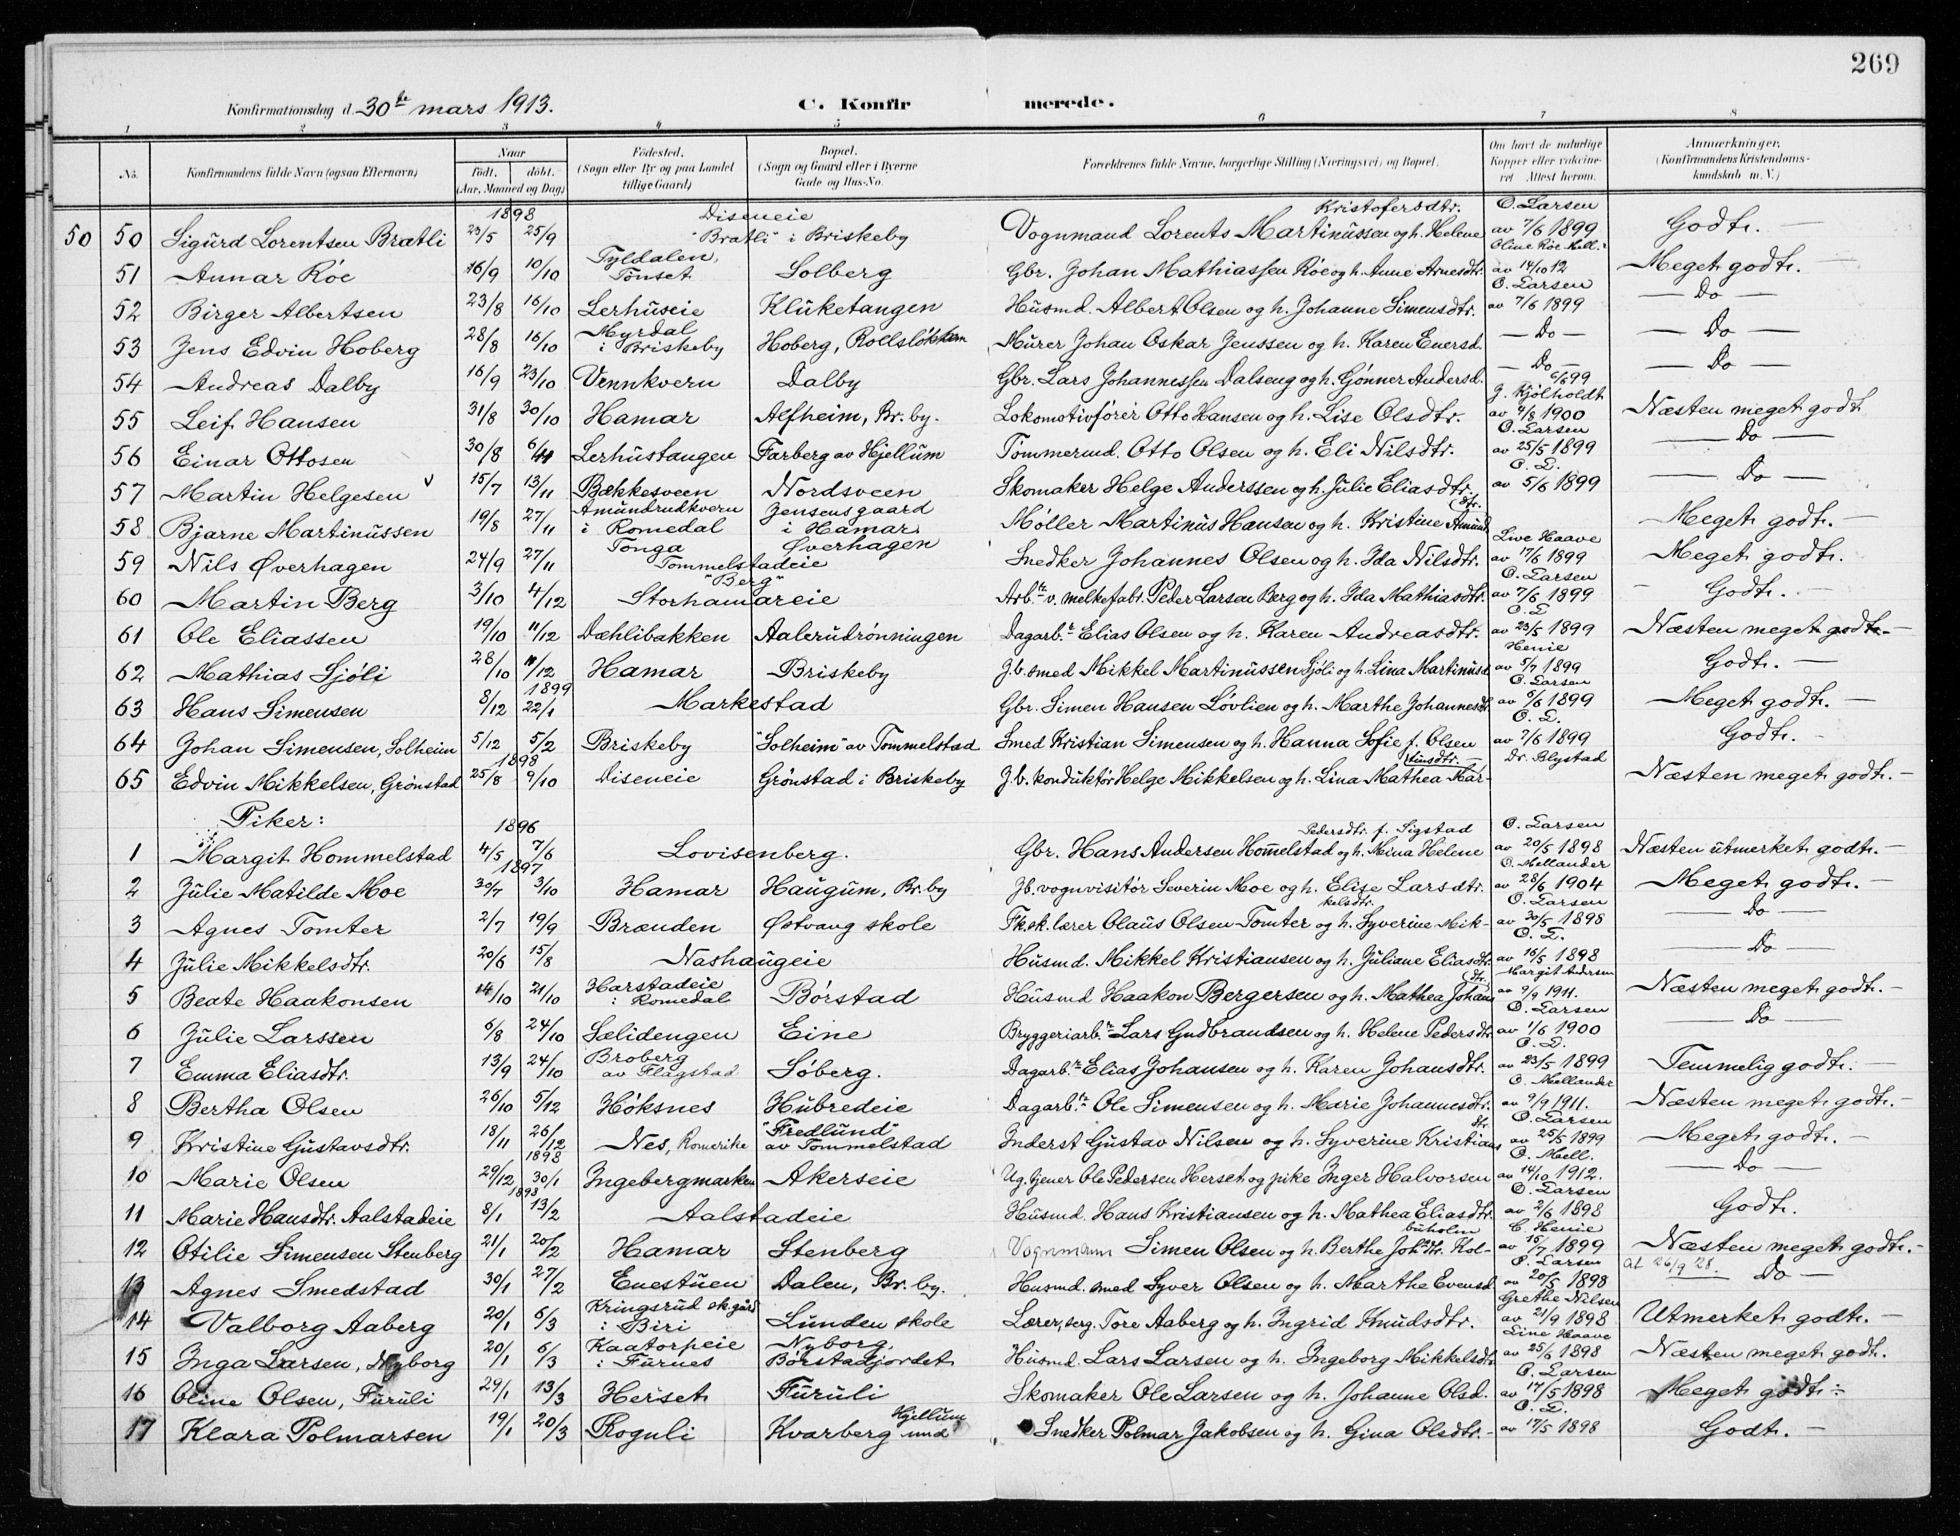 269
Konfirmationsdag d. 30te mars 1913. C. Konfirmerede.
1 2 3 4 5 6 7 8
No. Konfirmandens fulde Navn (ogsaa Efternavn) Naar født. døbt. (Aar, Maaned og Dag) Fødested. (Sogn eller By og paa Landet tillige Gaard) Bopæl. (Sogn og Gaard eller i Byerne Gade og Hus-No. Forældrenes fulde Navne, borgerlige Stilling (Næringsvei) og Bopæl. Om havt de naturlige Kopper eller vaccineret Attest herom. Anmærkninger. (Konfirmandens Kristendomskundskab m. V.)
1898 Diseneie Kristofersdtr. O. Larsen
50 50 Sigurd Lorentsen Bratli 23/5 25/9 "Bratli" i Briskeby Vognmand Lorents Martinussen og h. Helene av 7/6 1899 Godt. —
Tyldalen, Oline Röe Mell.
51 Annar Röe 16/9 10/10 Tönset Solberg Gbr. Johan Mathiassen Röe og h. Anne Arnesdtr. av 14/10 12 Meget godt. —
O. Larsen
52 Birger Albertsen 23/8 16/10 Lerhuseie Kluketangen Husmd. Albert Olsen og h. Johanne Simensdtr. av 7/6 1899 — Do —
Myrdal
53 Jens Edvin Hoberg 28/8 16/10 i Briskeby Hoberg, Rollsløkken Murer Johan Oskar Jenssen og h. Karen Enersd. — Do — — Do —
54 Andreas Dalby 16/9 23/10 Vennkvern Dalby Gbr. Lars Johannessen Dalseng og h. Gønner Andersd. — Do — 6/6 99 — Do —
J. Kjølholdt
55 Leif Hansen 31/8 30/10 Hamar Alfheim, Br. by. Lokomotivfører Otto Hansen og h. Lise Olsdtr. av 9/8 1900 Næsten meget godt
O. Larsen
56 Einar Ottosen 30/8 6/11 Lerhustangen Farberg av Hjellum Tømmermd. Otto Olsen og h. Eli Nilsdtr. av 25/5 1899 — Do —
O. L.
57 Martin Helgesen v 15/7 13/11 Bækkesveen Nordsveen Skomaker Helge Anderssen og h. Julie Eliasdtr. av 5/6 1899 — Do —
Amundrudkvern Jensensgaard dtr.
58 Bjarne Martinussen 19/8 27/11 i Romedal i Hamar Møller Martinus Hansen og h. Kristine Amund Meget godt. —
Tonga Øverhagen Live Haave
59 Nils Øverhagen 24/9 27/11 Tommelstadeie Snedker Johannes Olsen og h. Ida Nilsdtr. av 17/6 1899 Meget godt.
"Berg" O. Larsen
60 Martin Berg 3/10 4/12 Storhamareie Arb.r v. melkefabr. Peder Larsen Berg og h. Ida Mathiasdtr. av 7/6 1899 Godt. —
O. L.
61 Ole Eliassen 19/10 11/12 Dæhlibakken Aalerudrønningen Dagarb.r Elias Olsen og h. Karen Andreasdtr. av 23/5 1899 Næsten meget godt. —
Henie
62 Mathias Sjøli 28/10 11/12 Hamar Briskeby J.b. smed Mikkel Martinussen Sjøli og h. Lina Martinusd av 5/7 1899 Godt. —
1899 O. Larsen
63 Hans Simensen 8/12 22/1 Markestad Gbr. Simen Hansen Løvlien og h. Marthe Johannesdtr. av 8/6 1899 Meget godt. —
O. L.
64 Johan Simensen, Solheim 5/12 5/2 Briskeby "Solheim" av Tommelstad Smed Kristian Simensen og h. Hanna Sofie f. Olsen av 7/6 1899 Godt. —
1898 tinusdtr. — Dr. Blystad
65 Edvin Mikkelsen, Grønstad 25/8 9/10 Diseneie Grønstad i Briskeby J.b. konduktör Helge Mikkelsen og h. Lina Mathea Mar- Næsten meget godt. —
Piker:
1896 Pedersdtr. f. Sigstad O. Larsen
1 Margit Hommelstad 4/5 7/6 Lovisenberg. Gbr. Hans Andersen Hommelstad og h. Mina Helene av 20/5 1898 Næsten utmerket godt. —
1897 O. Mellander
2 Julie Matilde Moe 30/7 3/10 Hamar Haugum, Br. by Jb. vognvisitör Severin Moe og h. Elise Larsdtr. av 28/6 1904 Meget godt. —
kelsdtr. O. Larsen
3 Agnes Tomter 2/7 19/9 Brænden Østvang skole Fk.sk. lærer Olaus Olsen Tomter og h. Syverine Mik- av 30/5 1898 — Do —
O. L.
4 Julie Mikkelsdtr. 20/6 15/8 Nashaugeie Husmd. Mikkel Kristiansen og h. Juliane Eliasdtr. av 16/5 1898 — Do —
Harstadeie dtr. Margit Andersen
5 Beate Haakonsen 14/10 21/10 i Romedal Børstad Husmd Haakon Bergersen og h. Mathea Johans av 9/9 1911. Næsten meget godt. —
O. Larsen
6 Julie Larssen 6/8 24/10 Sælidengen Eine Bryggeriarb.r Lars Gudbrandsen og h. Helene Pedersdtr. av 1/6 1900 — Do —
Broberg O. L.
7 Emma Eliasdtr. 13/9 24/10 av Flagstad Søberg. Dagarb.r Elias Johansen og h. Karen Johansdtr. av 23/5 1899 Temmelig godt. —
O. Mellander
8 Bertha Olsen 26/10 5/12 Høksnes Hubredeie Dagarb.r Ole Simensen og h. Marie Johannesdtr. av 9/9 1911. Næsten meget godt. —
"Fredlund" dtr. O. Larsen
9 Kristine Gustavsdtr. 18/11 26/12 Nes, Romerike av Tommelstad Inderst Gustav Nilsen og h. Syverine Kristians av 25/5 1899 Meget godt. —
1898 O. Mell.
10 Marie Olsen 29/12 30/1 Ingebergmarken Akerseie Ug. tjener Ole Pedersen Herset og pike Inger Halvorsen av 14/10 1912. — Do —
1898 O. Larsen
11 Marie Hansdtr. Aalstadeie 8/1 13/2 Aalstadeie Husmd. Hans Kristiansen og h. Mathea Eliasdtr. av 2/6 1898 Godt.
buholm C. Henie
12 Otilie Simensen Stenberg 21/1 20/2 Hamar Stenberg Vognmann Simen Olsen og h. Berthe Johsdtr. Kol- av 15/7 1899 Næsten meget godt. —
O. Larsen at 26/9 28.
13 Agnes Smedstad 30/1 27/2 Enestuen Dalen, Br. by. Husmd. smed Syver Olsen og h. Marthe Evensd av 20/5 1898 Do —
Kringsrud sk.gård Grethe Nilsen
14 Valborg Aaberg 20/1 6/3 i Biri Lunden skole Lærer, serg. Tore Aaberg og h. Ingrid Knudsdtr. av 21/9 1898 Utmerket godt. —
Kaatorpeie Nyborg, Line Haave
15 Inga Larsen, Nyborg 20/1 6/3 i Furnes Børstadjordet Husmd. Lars Larsen og h. Ingeborg Mikkelsdtr. av 25/6 1898 Næsten meget godt.
O. Larsen
16 Oline Olsen, Furuli 29/1 13/3 Herset Furuli Skomaker Ole Larsen og h. Johanne Olsd. av 17/5 1898 Meget godt. —
Hjellum O. L.
17 Klara Polmarsen 19/1 20/3 Roguli Kvarberg und Snedker Polmar Jakobsen og h. Gina Olsdtr. — av 17/5 1898 Godt. —